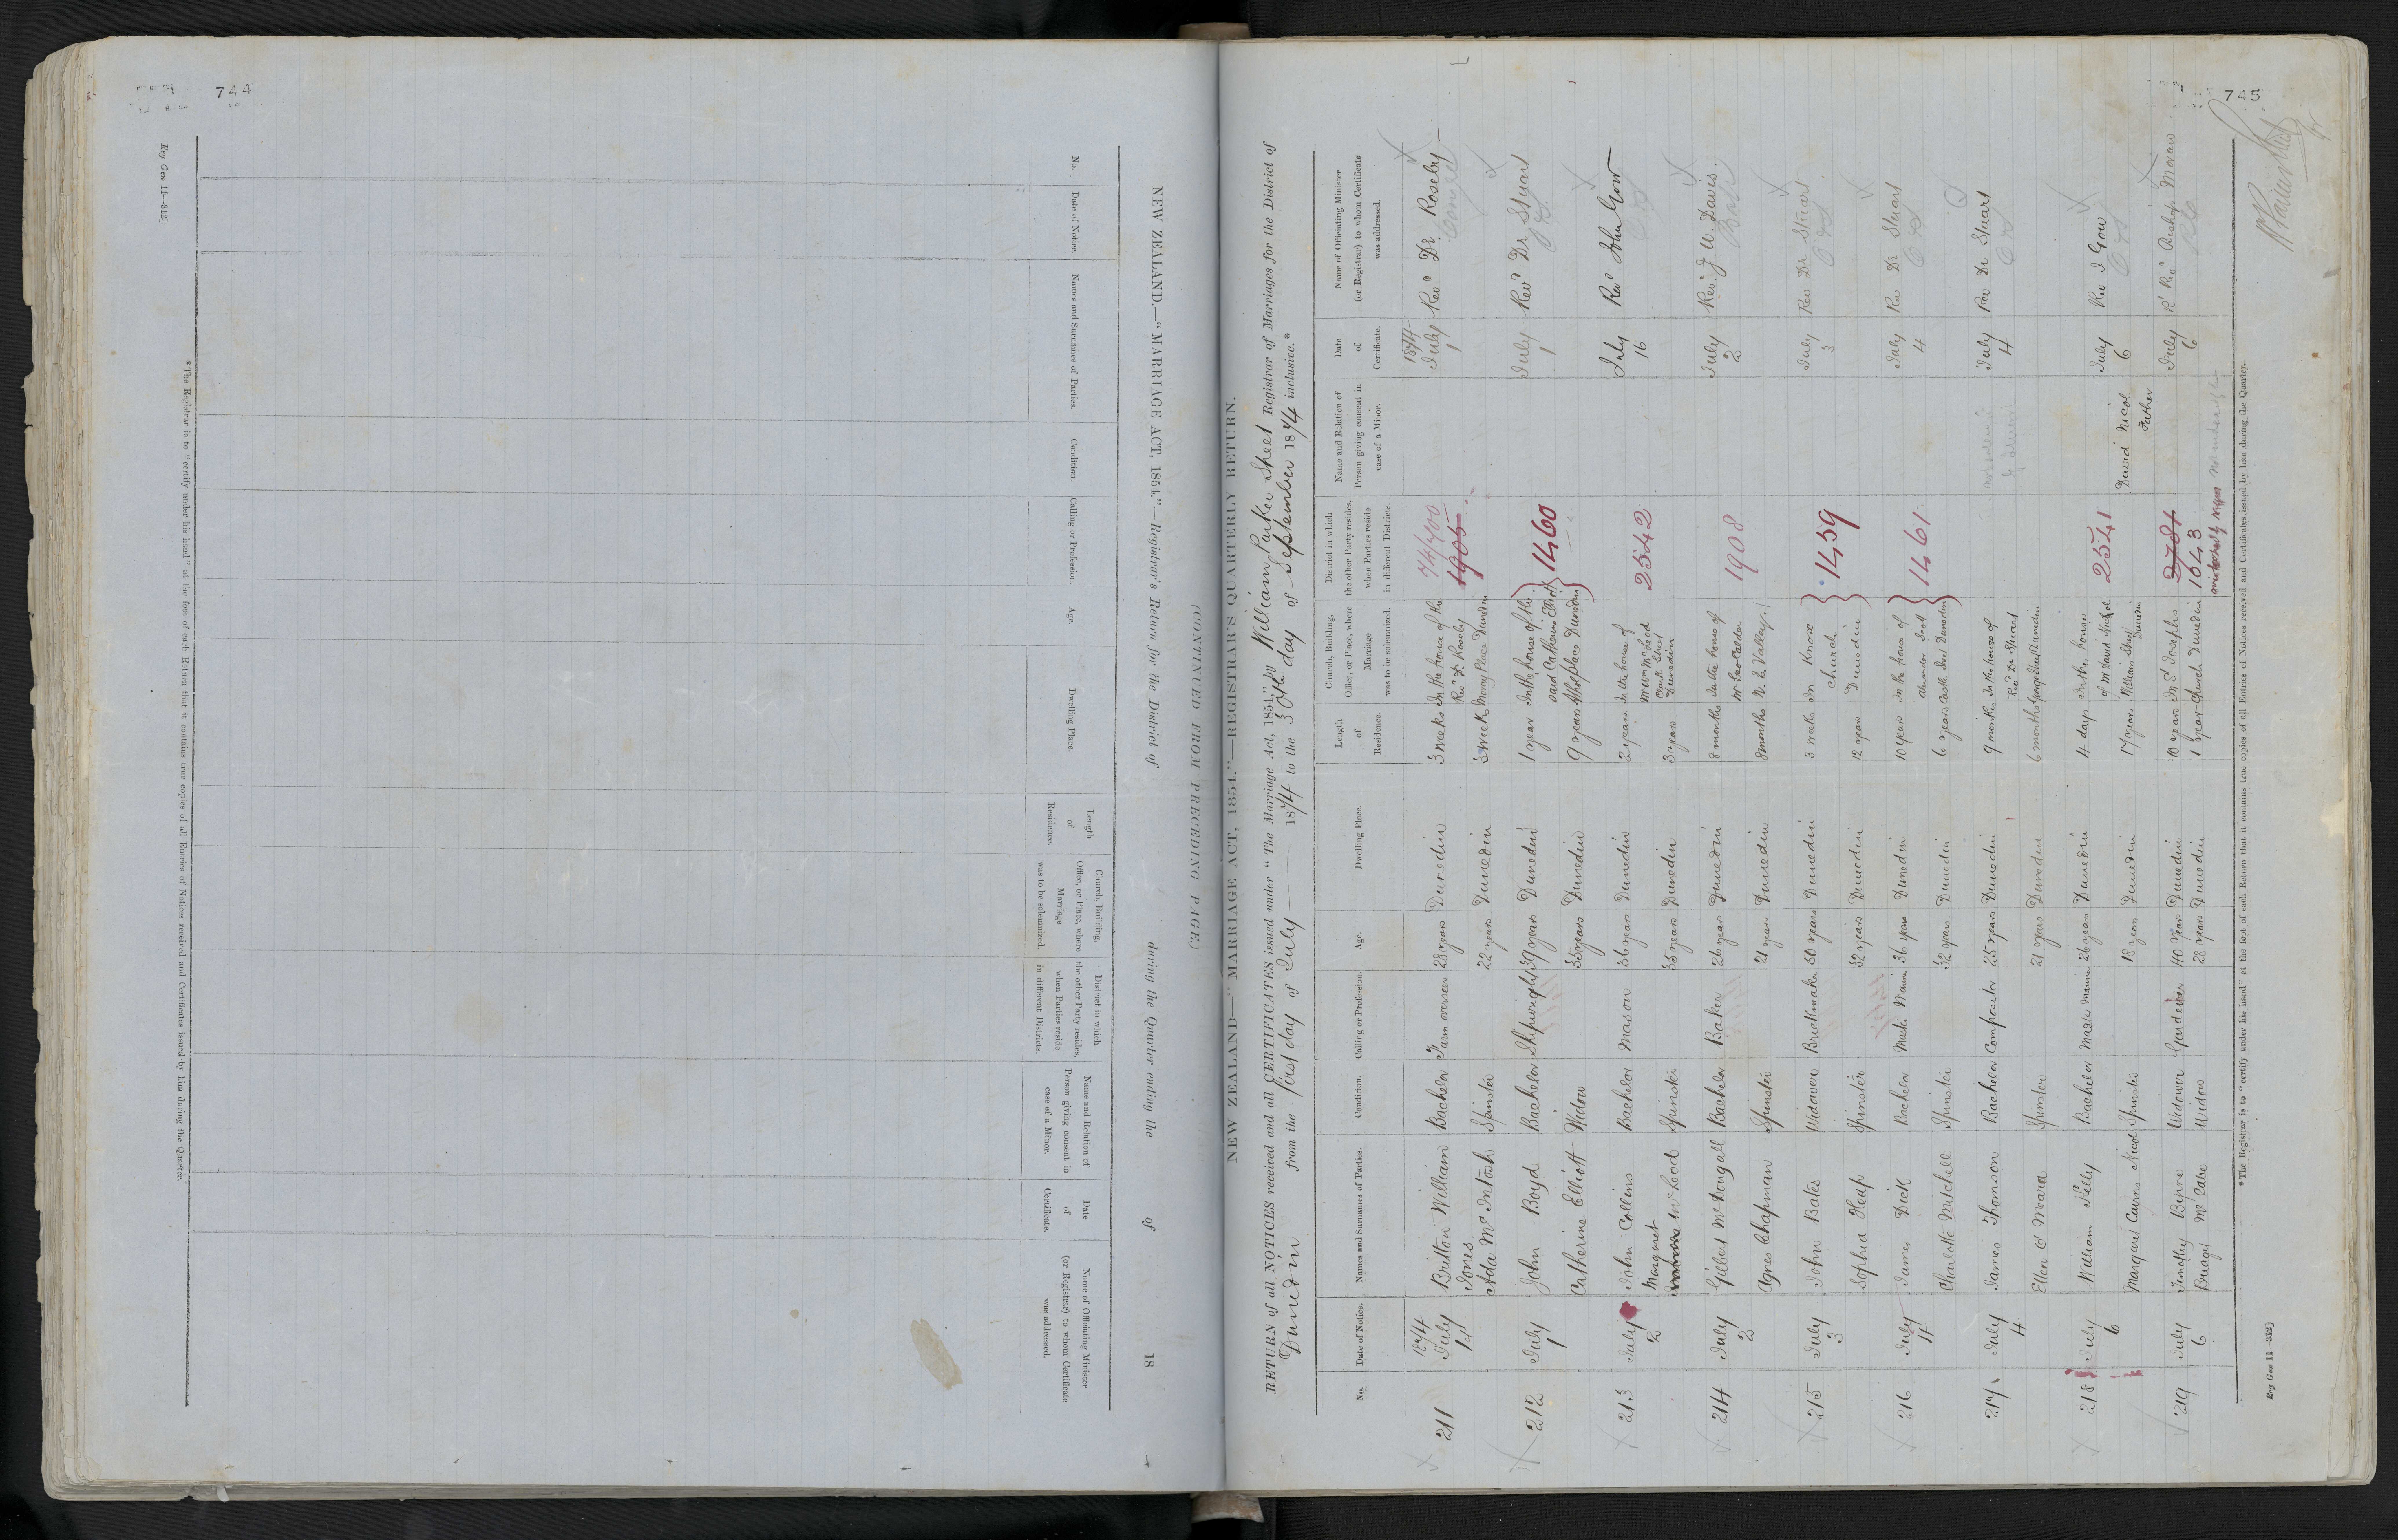 744
(CONTINUED FROM PRECEDING PAGE)
NEW ZEALAND.—"MARRIAGE ACT, 1854."—Registrar's Return for the District of during the Quarter ending the of 18
No.
Date of Notice.
Names and Surnames of Parties.
Condition.
Calling or Profession.
Age.
Dwelling Place.
Length of Residence.
Church, Building, Office, or Place, where Marriage was to be solemnized.
District in which the other Party resides, when Parties reside in different Districts.
Name and Relation of Person giving consent in case of a Minor.
Date of Certificate.
Name of Officiating Minister (or Registrar) to whom Certificate was addressed.
*The Registrar is to "certify under his hand" at the foot of each Return that it contains true copies of all Entries of Notices received and Certificates issued by him during the Quarter.
Reg Gen 11—312]
745
NEW ZEALAND—"MARRIAGE ACT, 1854."—REGISTRAR'S QUARTERLY RETURN.
RETURN of all NOTICES received and all CERTIFICATES issued under "The Marriage Act, 1854," by William Parker Street Registrar of Marriages for the District of
Dunedin from the first day of July 1874 to the 30th day of September 1874 inclusive.*
No.
Date of Notice.
Names and Surnames of Parties.
Condition.
Calling or Profession.
Age.
Dwelling Place.
Length of Residence.
Church, Building, Office, or Place, where Marriage was to be solemnized.
District in which the other Party resides, when Parties reside in different Districts.
Name and Relation of Person giving consent in case of a Minor.
Date of Certificate.
Name of Officiating Minister (or Registrar) to whom Certificate was addressed.
1874 1874
211 July 1 Britton William Jones Bachelor Farm overseer 28 years Dunedin 3 weeks In the house of the Revd Dr Roseby 74/400 July 1 Revd Dr. Roseby
Ada McIntosh Spinster 22 years Dunedin 3 weeks Moray Place Dunedin 1905
212 July 1 John Boyd Bachelor Shipwright 39 years Dunedin 1 year In the house of the said Catherine Elliott 1460 July 1 Revd Dr Stuart
Catherine Elliott Widow 35 years Dunedin 9 years Athol place Dunedin
213 July 2 John Collins Bachelor Mason 36 years Dunedin 2 years In the house of Mr Wm McLeod 2542 July 16 Revd John Gow
Margaret McLeod Spinster 35 years Dunedin 3 years Clark Street Dunedin
214 July 2 Gilbert McDougall Bachelor Baker 26 years Dunedin 8 months In the house of Mr Geo Calder 1908 July 2 Rev J. U. Davis.
Agnes Chapman Spinster 21 years Dunedin 8 months N. E. Valley
215 July 3 John Bates Widower Brickmaker 50 years Dunedin 3 weeks In Knox Church 1459 July 3 Rev Dr Stuart
Sophia Heap Spinster 32 years Dunedin 12 years Dunedin
216 July 4 James Dick Bachelor Master Marine 36 years Dunedin 10 years In the house of 1461 July 4 Rev Dr Stuart
Charlotte Mitchell Spinster 32 years Dunedin 6 years Castle Street Dunedin
217 July 4 James Thomson Bachelor Compositor 25 years Dunedin 9 months In the house of Revd Dr Stuart July 4 Rev Dr Stuart
Ellen O'Meara Spinster 21 years Dunedin 6 months George Street Dunedin
218 July 6 William Kelly Bachelor Master Marine 26 years Dunedin 4 days In the house of Mr David Nicol 2541 July 6 Rev J Gow
Margaret Cairns Nicol Spinster 18 years Dunedin 17 years William Street Dunedin David Nicol Father
219 July 6 Timothy Byrne Widower Gardener 40 years Dunedin 10 years In St Josephs 2781 July 6 Rt Revd Bishop Moran
Bridget McCabe Widow 28 years Dunedin 1 year Church Dunedin 1043
*The Registrar is to "certify under his hand" at the foot of each Return that it contains true copies of all Entries of Notices received and Certificates issued by him during the Quarter.
Reg Gen 11—312]